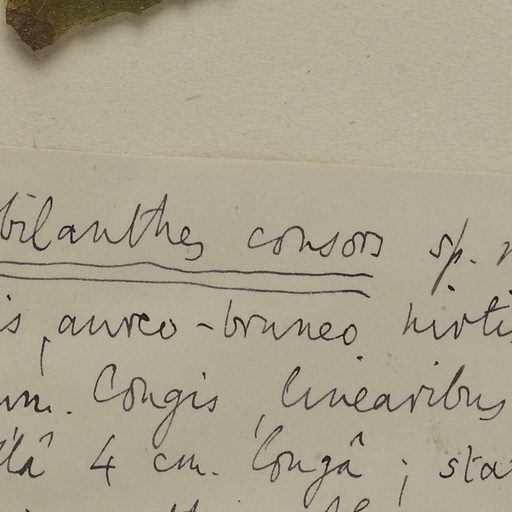 bilanthes consors sp. n
is, aureo-bruneo hirtis
m. longis, linearibus
lâ 4 cm. longâ; sta